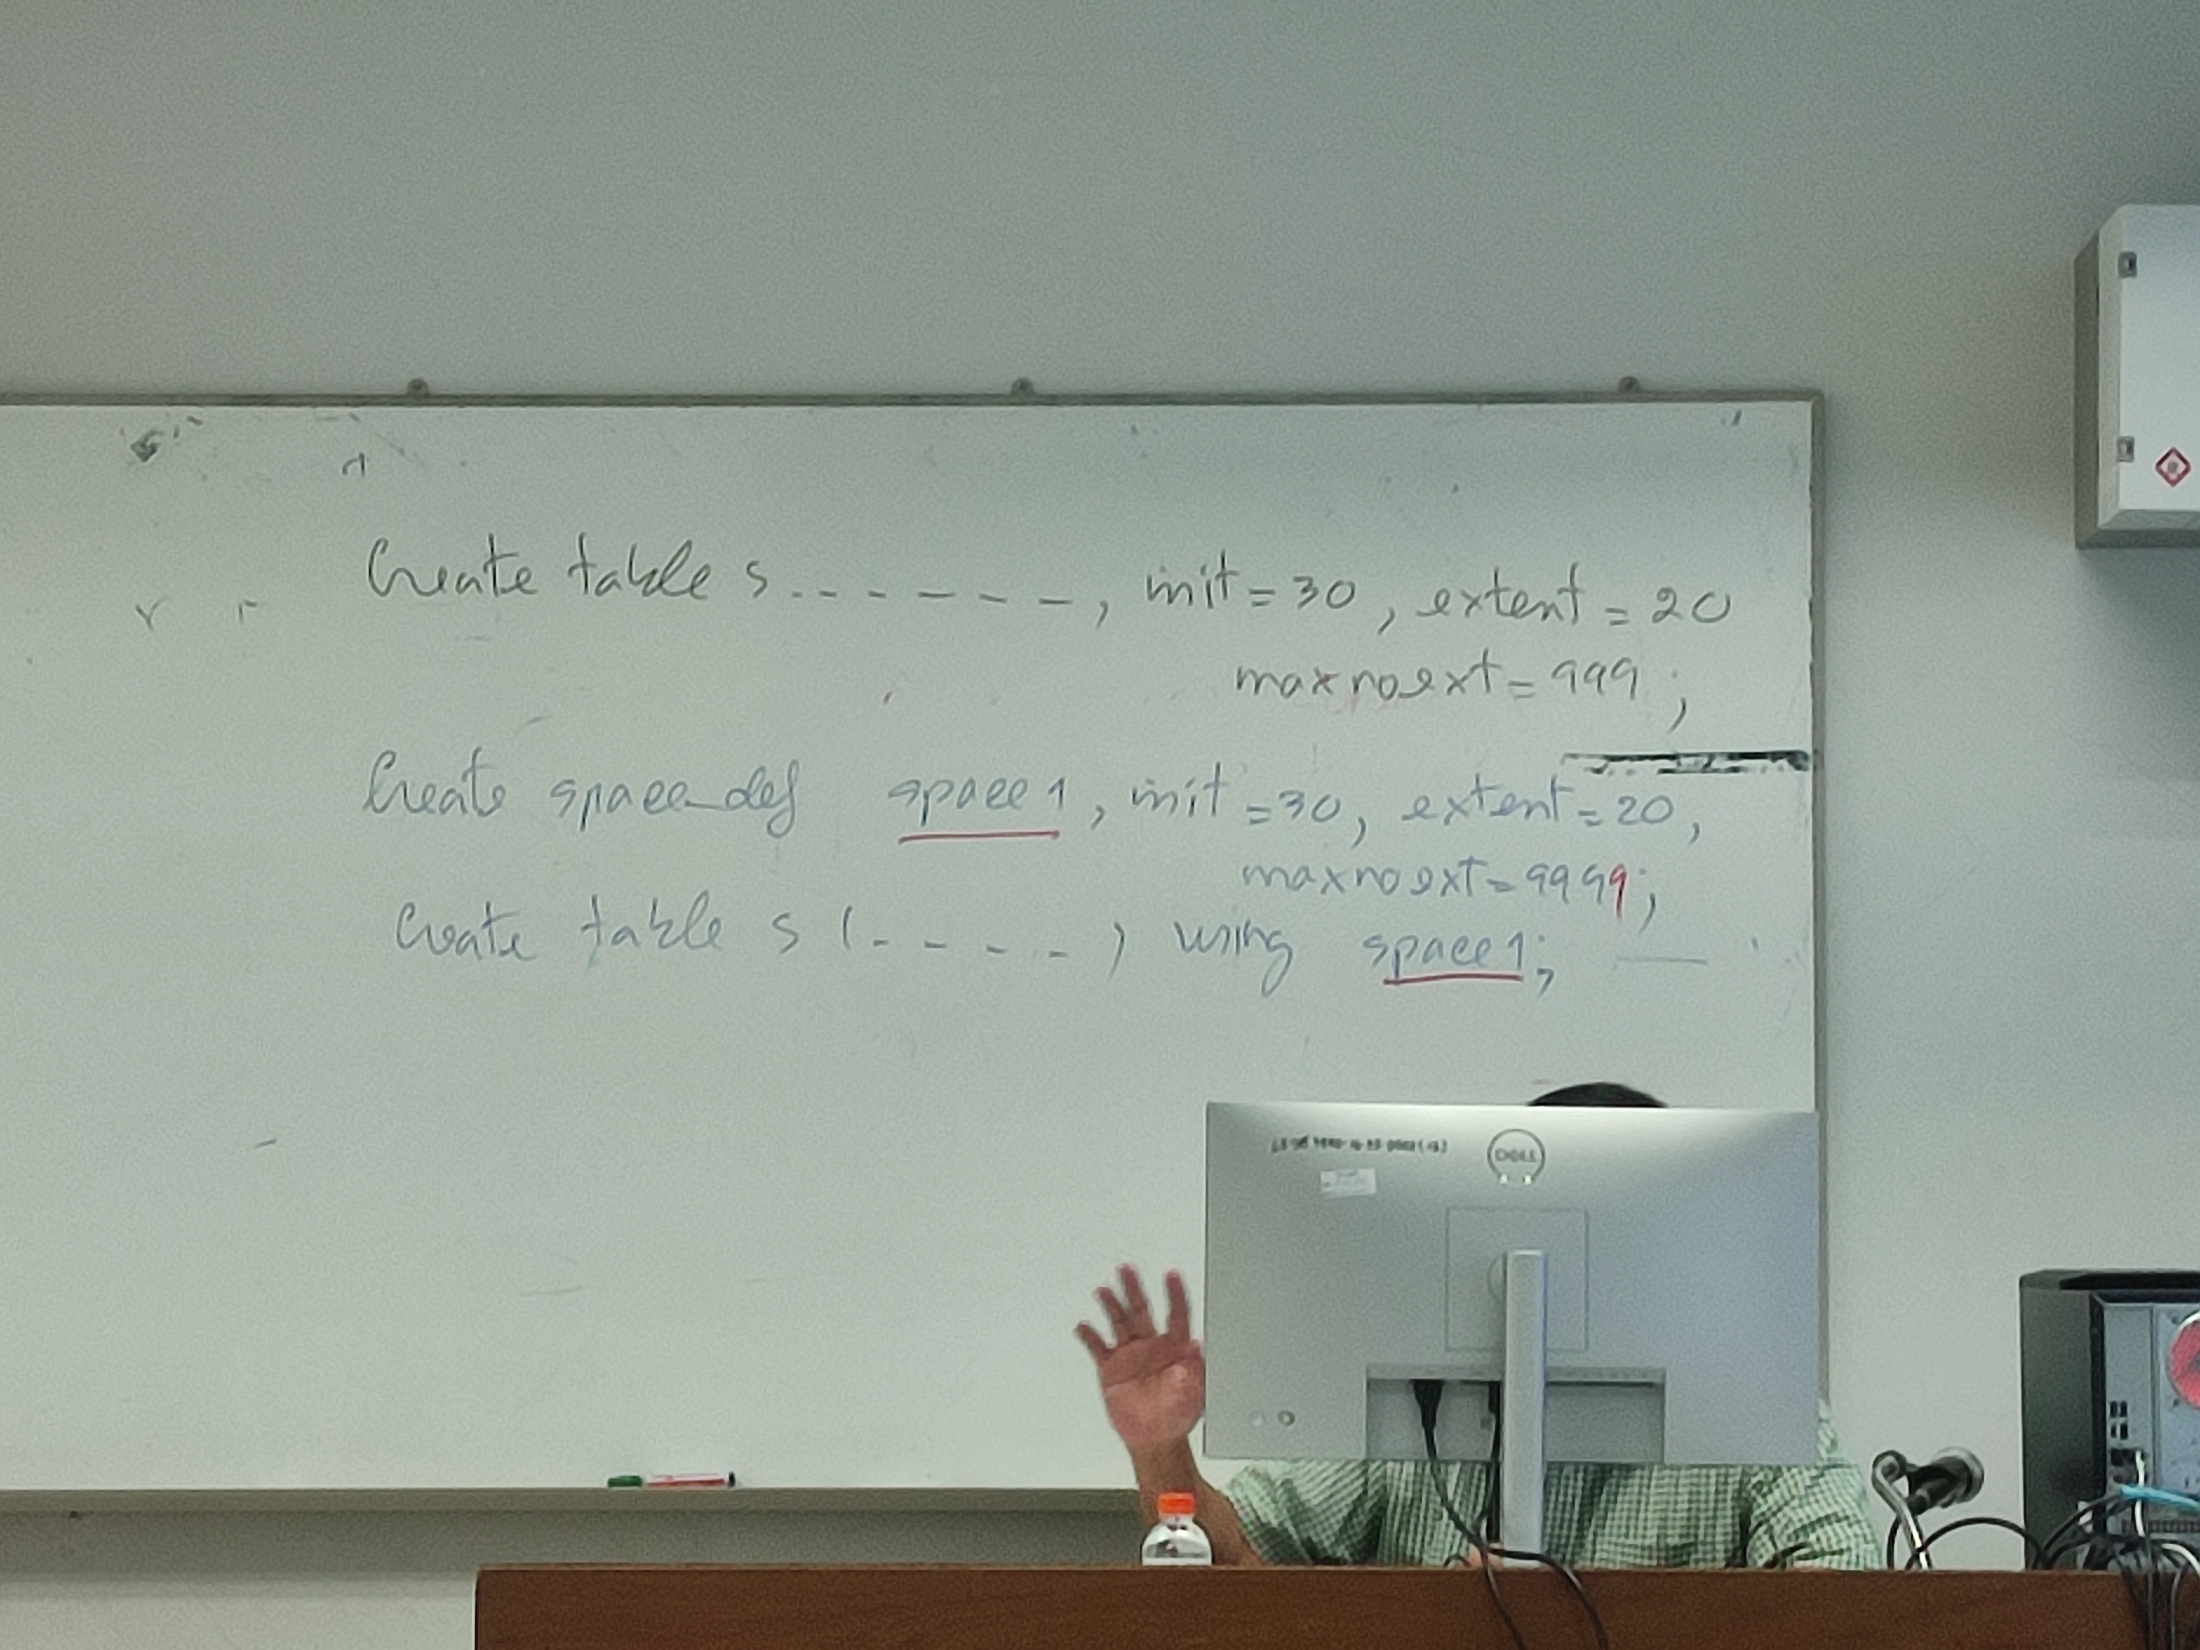 Create table s . - - - - - -, init = 30, extent = 20
maxnoext = 999;
Create space_def space1, init = 30, extent = 20,
maxnoext = 9999;
Create table s (- - - - -) using space1;
DELL